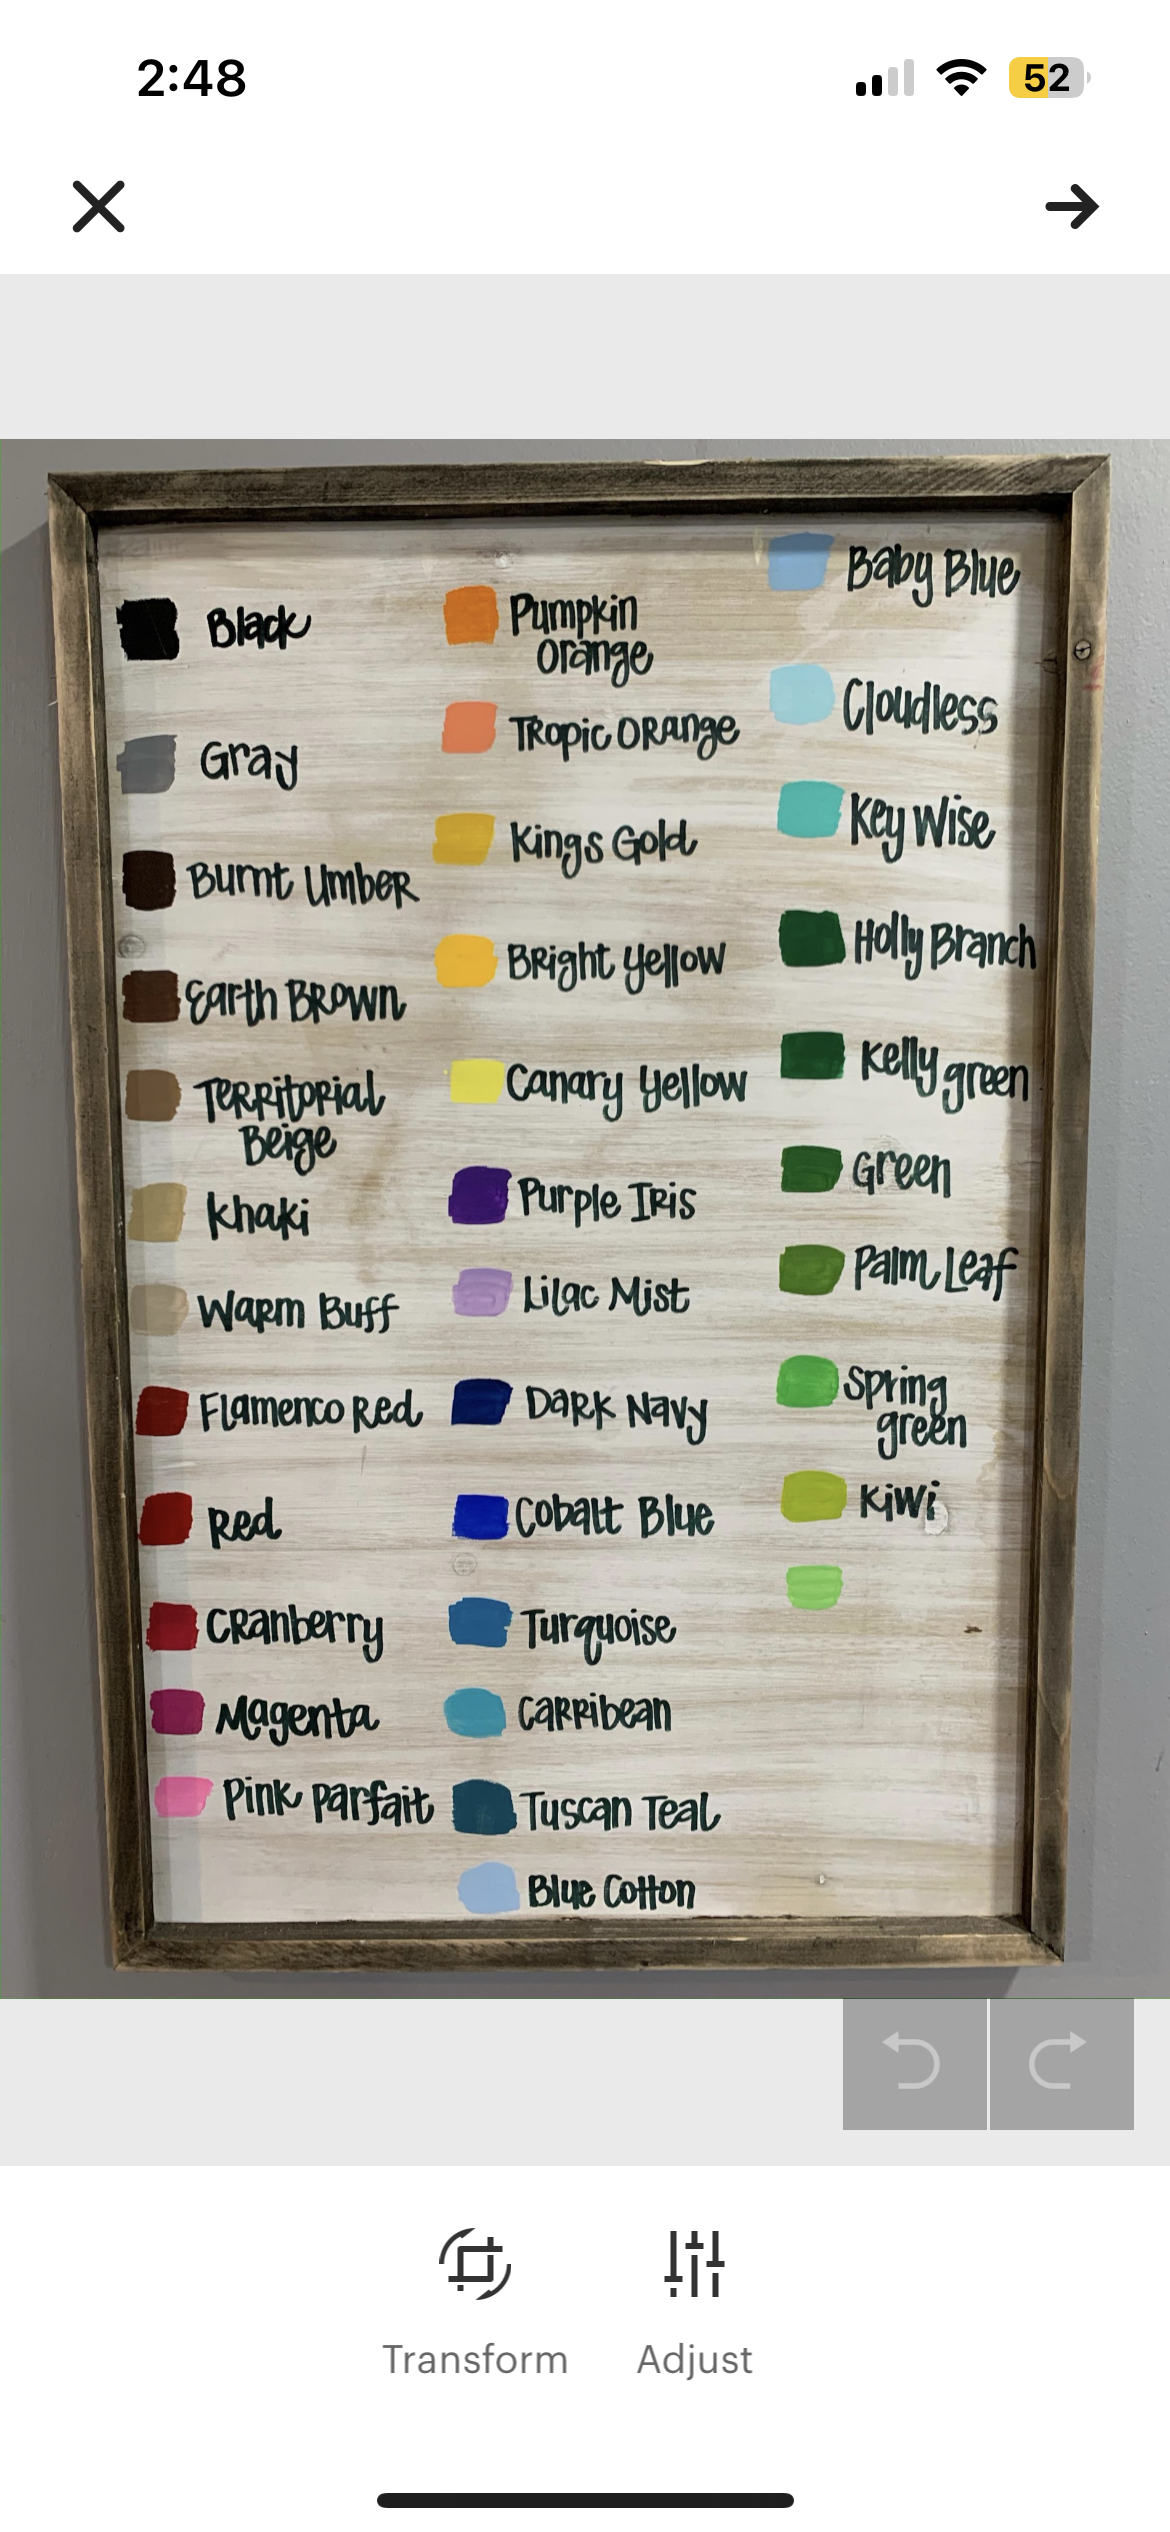 2:48
52
Black
Gray
Burnt Umber
Earth Brown
Territorial
Beige
Khaki
Warm Buff
Flamenco Red
Red
Cranberry
Magenta
Pink Parfait
Pumpkin
Orange
Tropic Orange
Kings Gold
Bright Yellow
Canary Yellow
Purple Iris
Lilac Mist
Dark Navy
Cobalt Blue
Turquoise
Carribean
Tuscan Teal
Blue Cotton
Baby Blue
Cloudless
Key Wise
Holly Branch
Kelly green
Green
Palm Leaf
Spring
green
Kiwi
Transform
Adjust